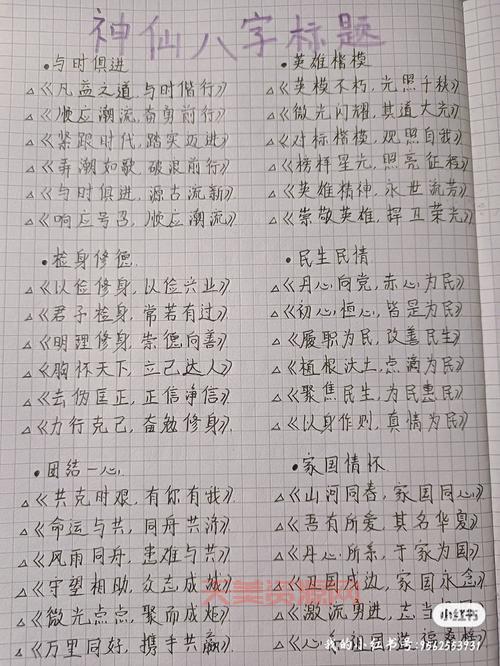 神仙八字标题
·与时俱进
△《凡益之道,与时偕行》
△《顺应潮流,奋勇前行》
△《紧跟时代,踏实迈进》
△《弄潮如歌,破浪前行》
△《与时俱进,源古流新》
△《响应号召,顺应潮流》
·检身修德
△《以俭修身,以俭兴业》
△《君子检身,常若有过》
△《明理修身,崇德向善》
△《胸怀天下,立己达人》
△《去伪匡正,正信净信》
△《力行克己,奋勉修身》
·团结一心
△《共克时艰,有你有我》
△《命运与共,同舟共济》
△《风雨同舟,患难与共》
△《守望相助,众志成城》
△《微光点点,聚而成炬》
△《万里同好,携手共赢》
·英雄楷模
△《英模不朽,光照千秋》
△《微光闪耀,其道大光》
△《对标楷模,观照自我》
△《榜样星光,照亮征程》
△《英雄精神,永世流芳》
△《崇敬英雄,捍卫荣光》
·民生民情
△《丹心向党,赤心为民》
△《初心恒心,皆是为民》
△《履职为民,改善民生》
△《植根沃土,点滴为民》
△《聚焦民生,为民惠民》
△《以身作则,真情为民》
·家国情怀
△《山河同春,家国同心》
△《吾有所爱,其名华夏》
△《丹心所系,于家为国》
△《卫国戍边,家国永念》
△《激流勇进,志当
△《心
天美资源网
小红书
我的小红书号:9562553931